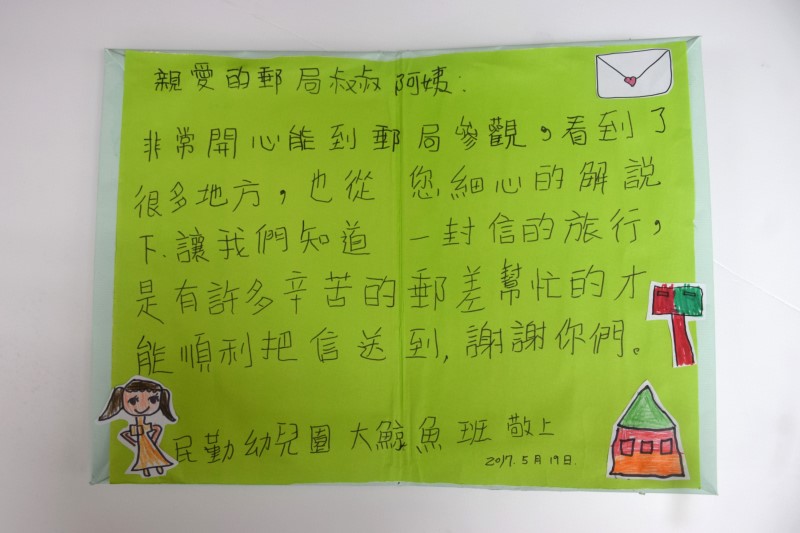 親愛的郵局叔叔阿姨:
非常開心能到郵局參觀,看到了
很多地方,也從您細心的解說
下.讓我們知道一封信的旅行,
是有許多辛苦的郵差幫忙的才
能順利把信送到,謝謝你們。
民勤幼兒園大鯨魚班敬上
2017.5月19日.